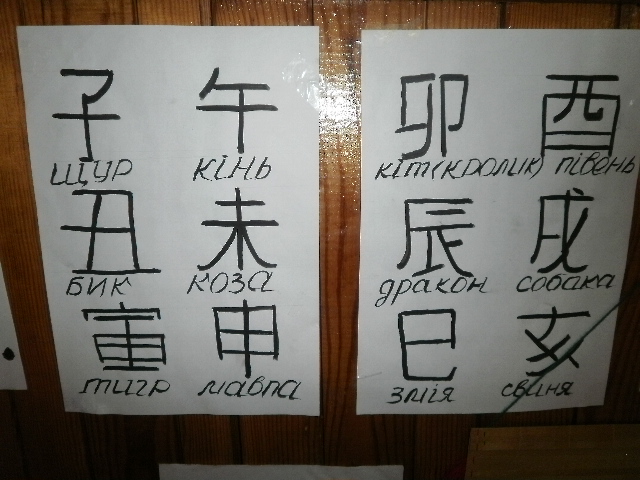 子 午
щур кінь
丑 未
бик коза
寅 申
тигр мавпа
卯 酉
кіт(кролик) півень
辰 戌
дракон собака
巳 亥
змія свиня